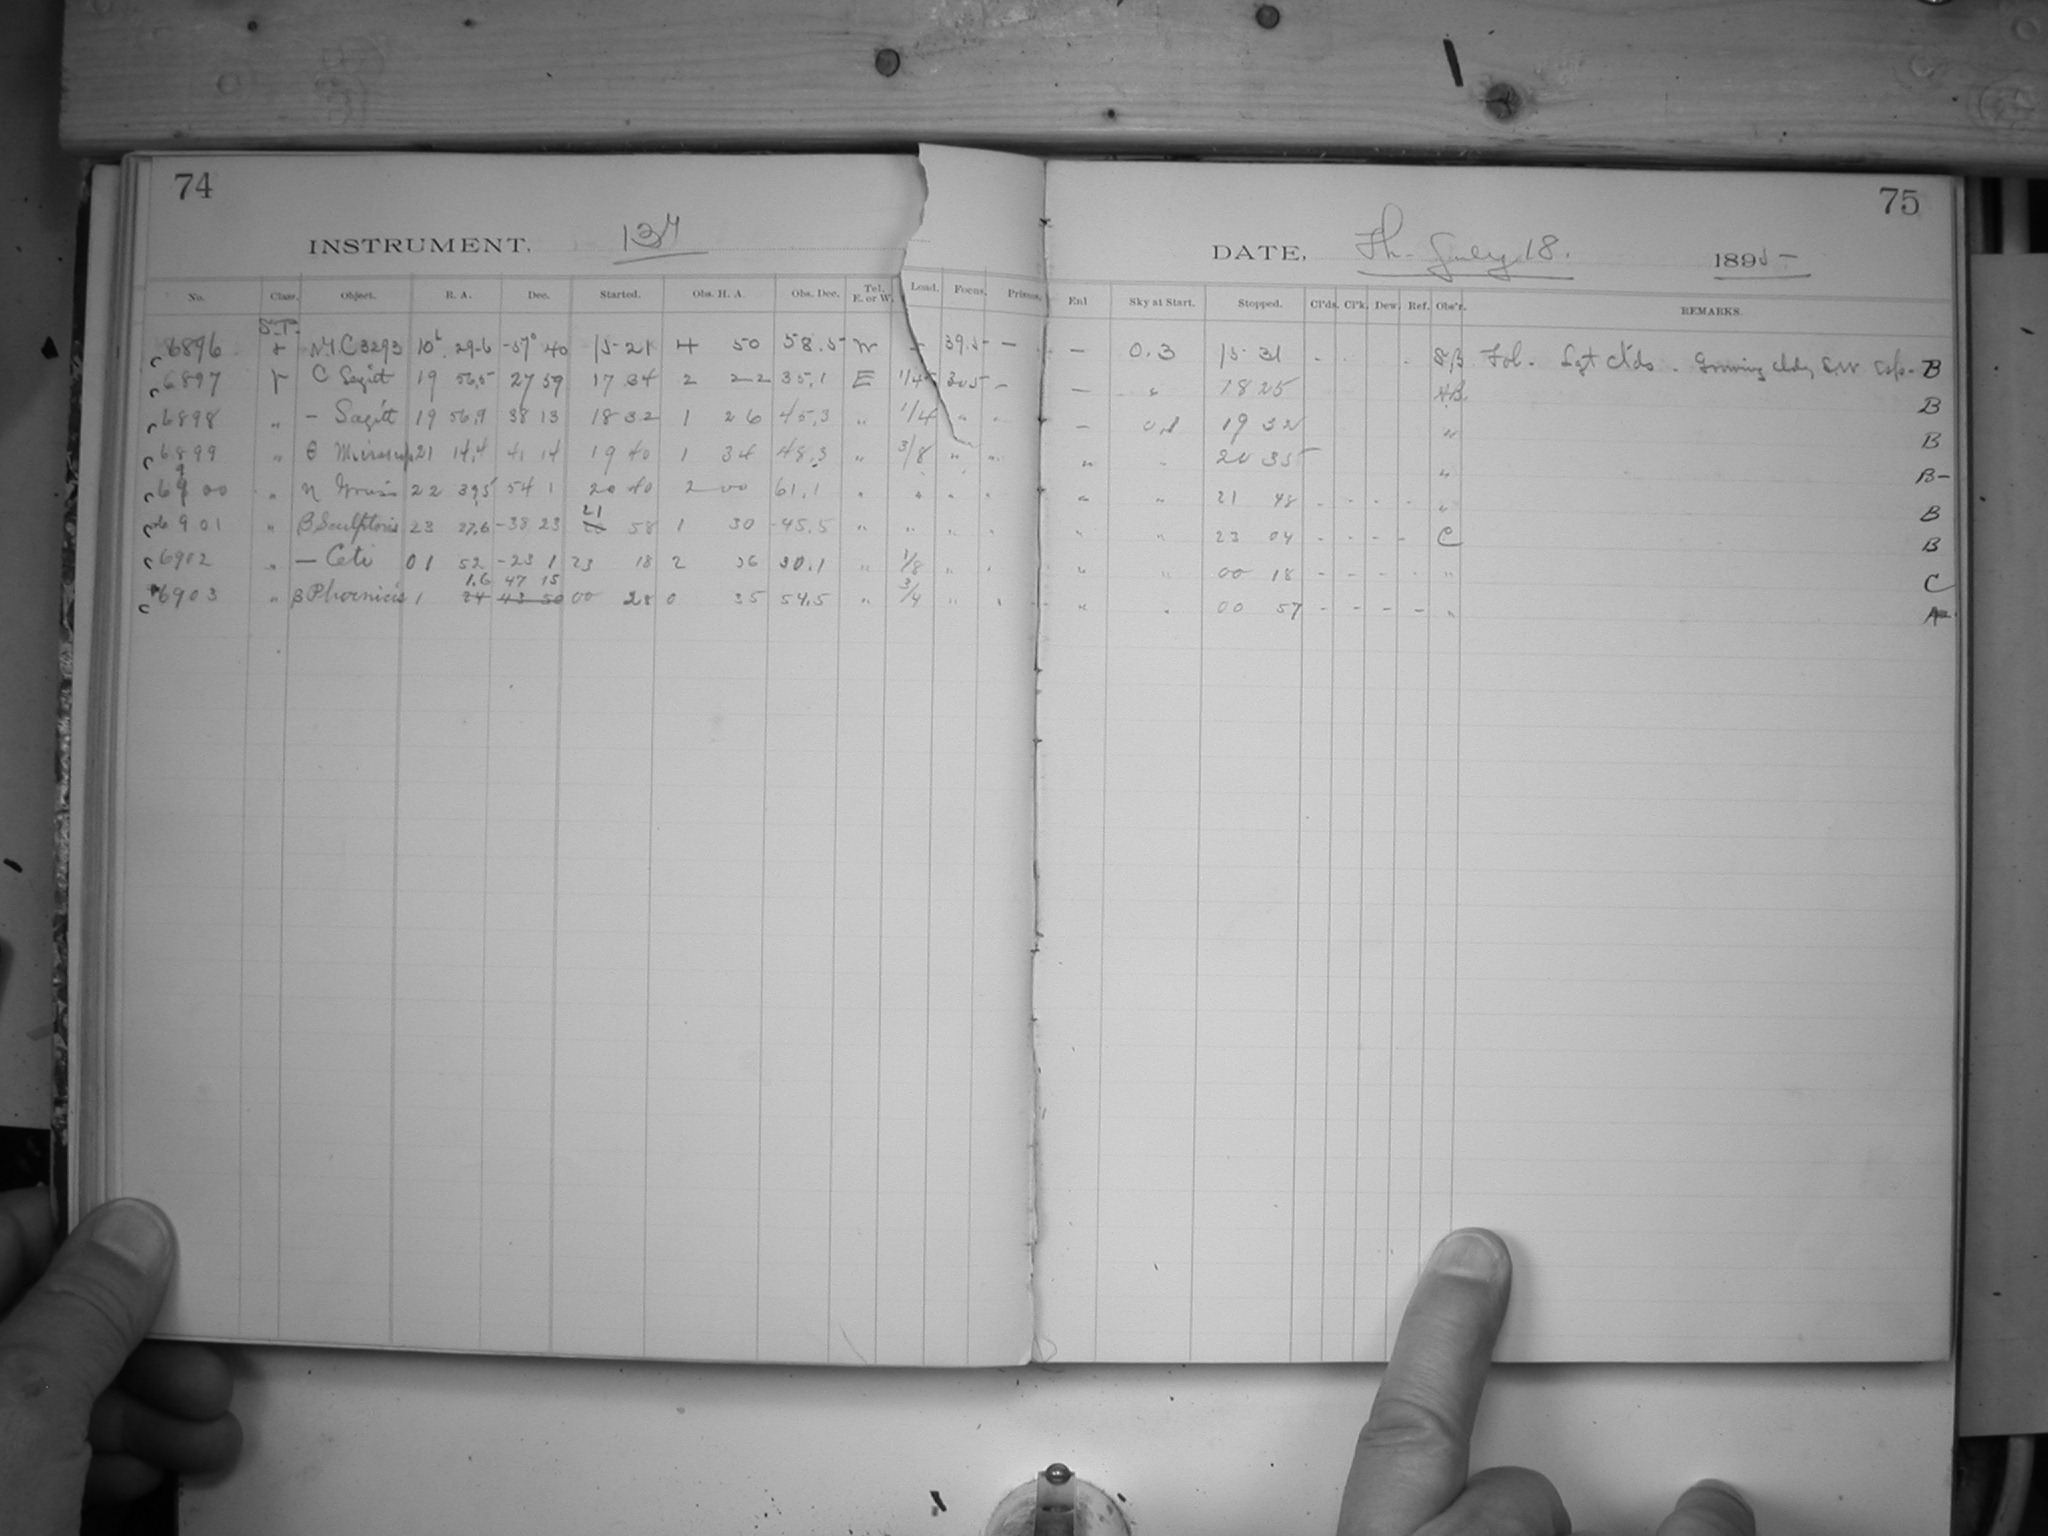 74
75
INSTRUMENT.
DATE, Th. July 18. 1895
No. Class. Object. R. A. Dec. Started. Obs. H. A. Obs. Dec. Tel. E. or W. Load. Focus. Prisms. Enl Sky at Start. Stopped. Cl'ds. Cl'k. Dew. Ref. Obs'r. REMARKS.
S.T.
6896 10h 29.6 -57° 40 15 21 4 50 58.5 W - 39.5 - - 0.3 15 31 B
6897 C Sagitt 19 56.5 27 59 17 34 2 22 35.1 E - - " 18 25 B
6898 " - Sagitt 19 56.9 38 13 18 32 1 26 45.3 " 1/4 " " - 19 32 " B
6899 " θ 21 14.4 41 14 19 40 1 34 48.3 " 3/8 " " " " 20 35 " B-
6900 " 22 39.5 54 1 20 40 2 00 61.1 " " " " " " 21 48 - - - - " B
6901 " β Sculptoris 23 27.6 -38 23 21 58 1 30 -45.5 " " " " " " 23 04 - - - - C B
6902 " - Ceti 01 52 -23 1 23 18 2 36 30.1 " 1/8 " " " " 00 18 - - - - " C
1.6 47 15
6903 " β Phoenicis 1 24 43 50 00 28 0 35 54.5 " 3/4 " " " " 00 57 - - - - " A